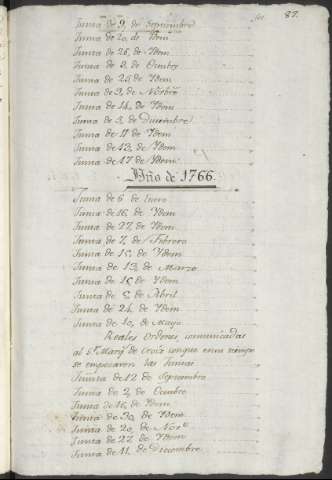 87.
Junta de 9, de Septiembre
Junta de 20, de Ydem
Junta de 26, de Ydem
Junta de 8, de Octubre
Junta de 25 de Ydem
Junta de 9, de Nobre
Junta de 14, de Ydem
Junta de 5, de Diciembre
Junta de 11 de Ydem
Junta de 13, de Ydem
Junta de 17 de Ydem
Año de 1766.
Junta de 6 de Enero
Junta de 16, de Ydem
Junta de 27, de Ydem
Junta de 7, de Febrero
Junta de 15, de Ydem
Junta de 13, de Marzo
Junta de 15 de Ydem
Junta de 5 de Abril
Junta de 24, de Ydem
Junta de 10, de Mayo
Reales Ordenes, comunicadas
al Sr. Marqs de Croix conque en su tiempo
se empezaron las Juntas
Junta de 12 de Septiembre
Junta de 2, de Octubre
Junta de 16, de Ydem
Junta de 30, de Ydem
Junta de 20, de Nove
Junta de 27, de Ydem
Junta de 11, de Diciembre